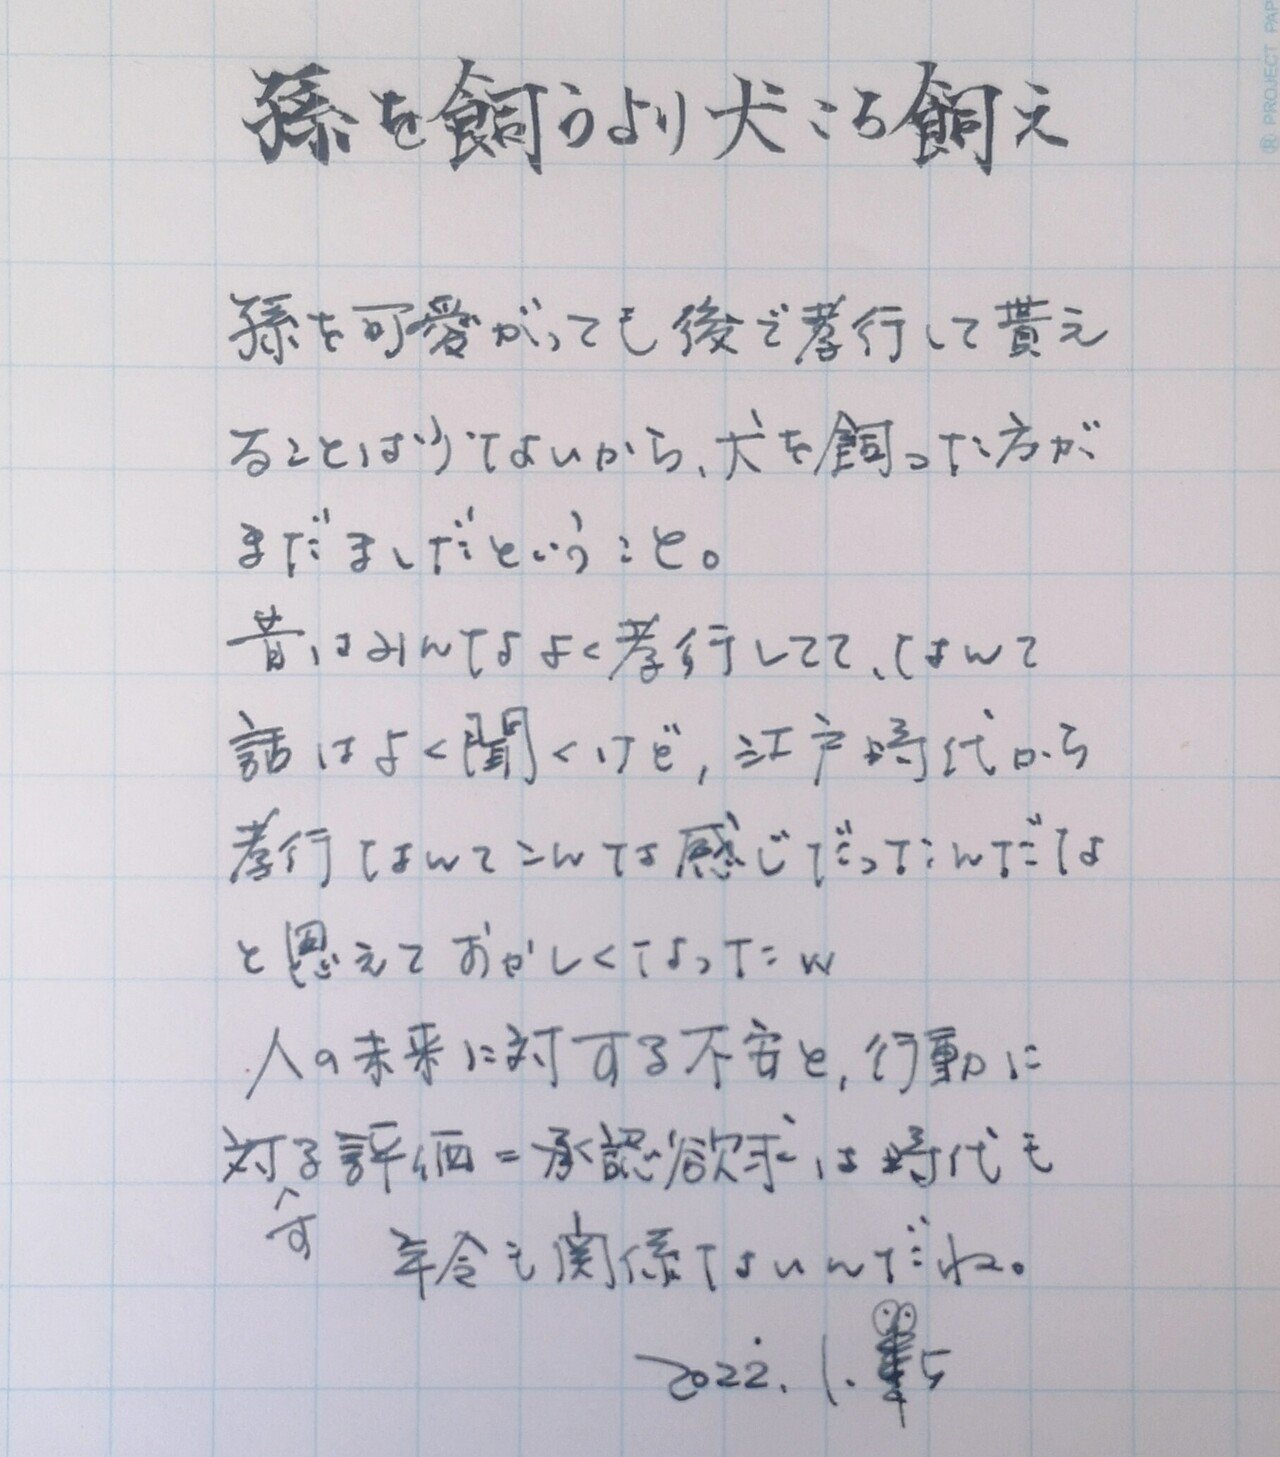 孫を飼うより犬ころ飼え
孫を可愛がっても後で孝行して貰え
ることは少ないから、犬を飼った方が
まだましだということ。
昔はみんなよく孝行してて、なんて
話はよく聞くけど、江戸時代から
孝行なんてこんな感じだったんだな
と思えておかしくなったw
人の未来に対する不安と、行動に
対する評価=承認欲求は時代も
年令も関係ないんだね。
2022.1.5
PROJECT PAP